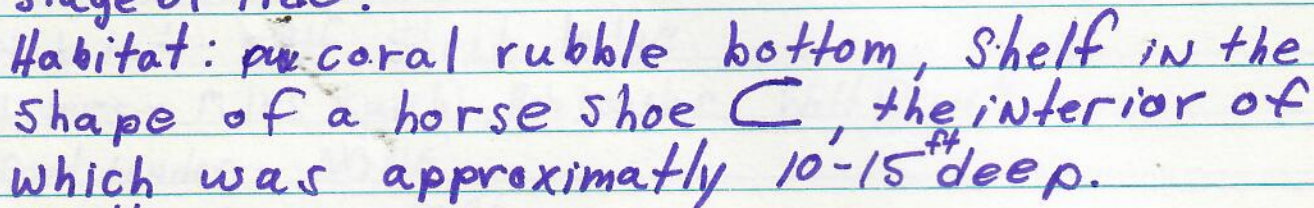 Habitat: coral rubble bottom, shelf in the
shape of a horse shoe ⊂, the interior of
which was approximatly 10'-15 ft deep.